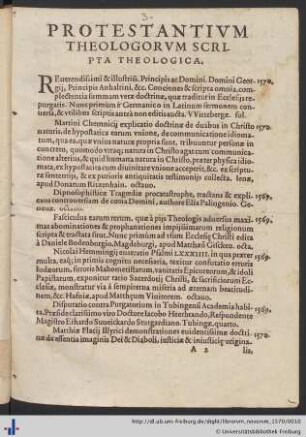 PROTESTANTIVM
THEOLOGORVM SCRI-
PTA THEOLOGICA.
REuerendissimi & illustriss. Principis ac Domini. Domini Geor- 1570.
gij, Principis Anhaltini, &c. Conciones & scripta omnia, com-
plectentia summam veræ doctrinæ, quæ traditur in Ecclesijs re-
purgatis. Nunc primùm è Germanico in Latinum sermonem con-
uersa, & vtilibus scriptis antea non editis aucta. VVitebergæ. fol.
Martini Chemnicij explicatio doctrinæ de duabus in Christo 1570.
naturis, de hypostatica earum vnione, de communicatione idioma-
tum, quæ ea, quæ vnius naturæ propria sunt, tribuuntur personæ in
concreto, quomodo vtraq; natura in Christo agat cum communica-
tione alterius, & quid humana natura in Christo, præter physica idio-
mata, ex hypostatica cum diuinitate vnione acceperit, &c. ex scriptu-
ra sententijs, & ex purioris antiquitatis testimonijs collecta. Ienæ,
apud Donatum Ritzenhain. octauo.
Dipnosophisticæ Tragœdiæ procatastrophe, tractans & expli- 1569.
cans controuersiam de cœna Domini, authore Elia Palingenio.
octauo.
Fasciculus earum rerum, quæ à pijs Theologis aduersus maxi- 1569.
mas abominationes & prophanationes impijssimarum religionum
scripta & tractata sunt. Nunc primùm ad vsum Ecclesiæ Christi edita
à Daniele Bodenborgio. Magdaburgi, apud Matthæum Giscken. octa.
Nicolai Hemmingij enarratio Psalmi LXXXIIII. in qua præter 1569.
multa, easq; in primis cognitu necessaria, texitur confutatio erroris
Iudæorum, furoris Mahometistarum, vanitatis Epicureorum, & idoli
Papistarum, exponitur ratio Sacerdotij Christi, & sacrificiorum Ec-
clesiæ, monstratur via à sempiterna miseria ad æternam beatitudi-
nem, &c. Hafniæ, apud Matthæum Vinitorem. octauo.
Disputatio contra Purgatorium in Tubingensi Academia habi- 1569.
ta, Præside clarissimo viro Doctore Iacobo Heerbrando, Respondente
Magistro Erhardo Stuttgardiano. Tubingæ, quarto.
Matthiæ Flacij Illyrici demonstrationes euidentissimæ doctri- 1570.
næ de essentia imaginis Dei & Diaboli, iustitiæ & iniustitiæ originalis
A 2 lis,
http://dl.ub.uni-freiburg.de/diglit/librorvm_novorvm_1570/0010
© Universitätsbibliothek Freiburg